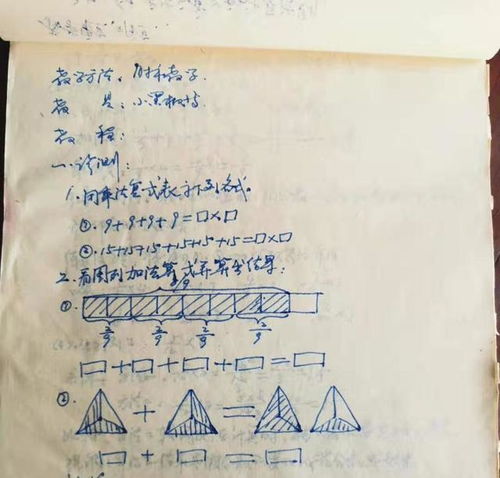 教学方法:
教 具:小黑板
教 程:
一、诊测:
1.用乘法算式表示下列各式。
①. 9+9+9+9=□×□
②. 15+15+15+15+15+15=□×□
二.看图列加法算式并算出结果:
①.
2/9 2/9 2/9 2/9
□+□+□+□=□
②.
+ =
□+□=□